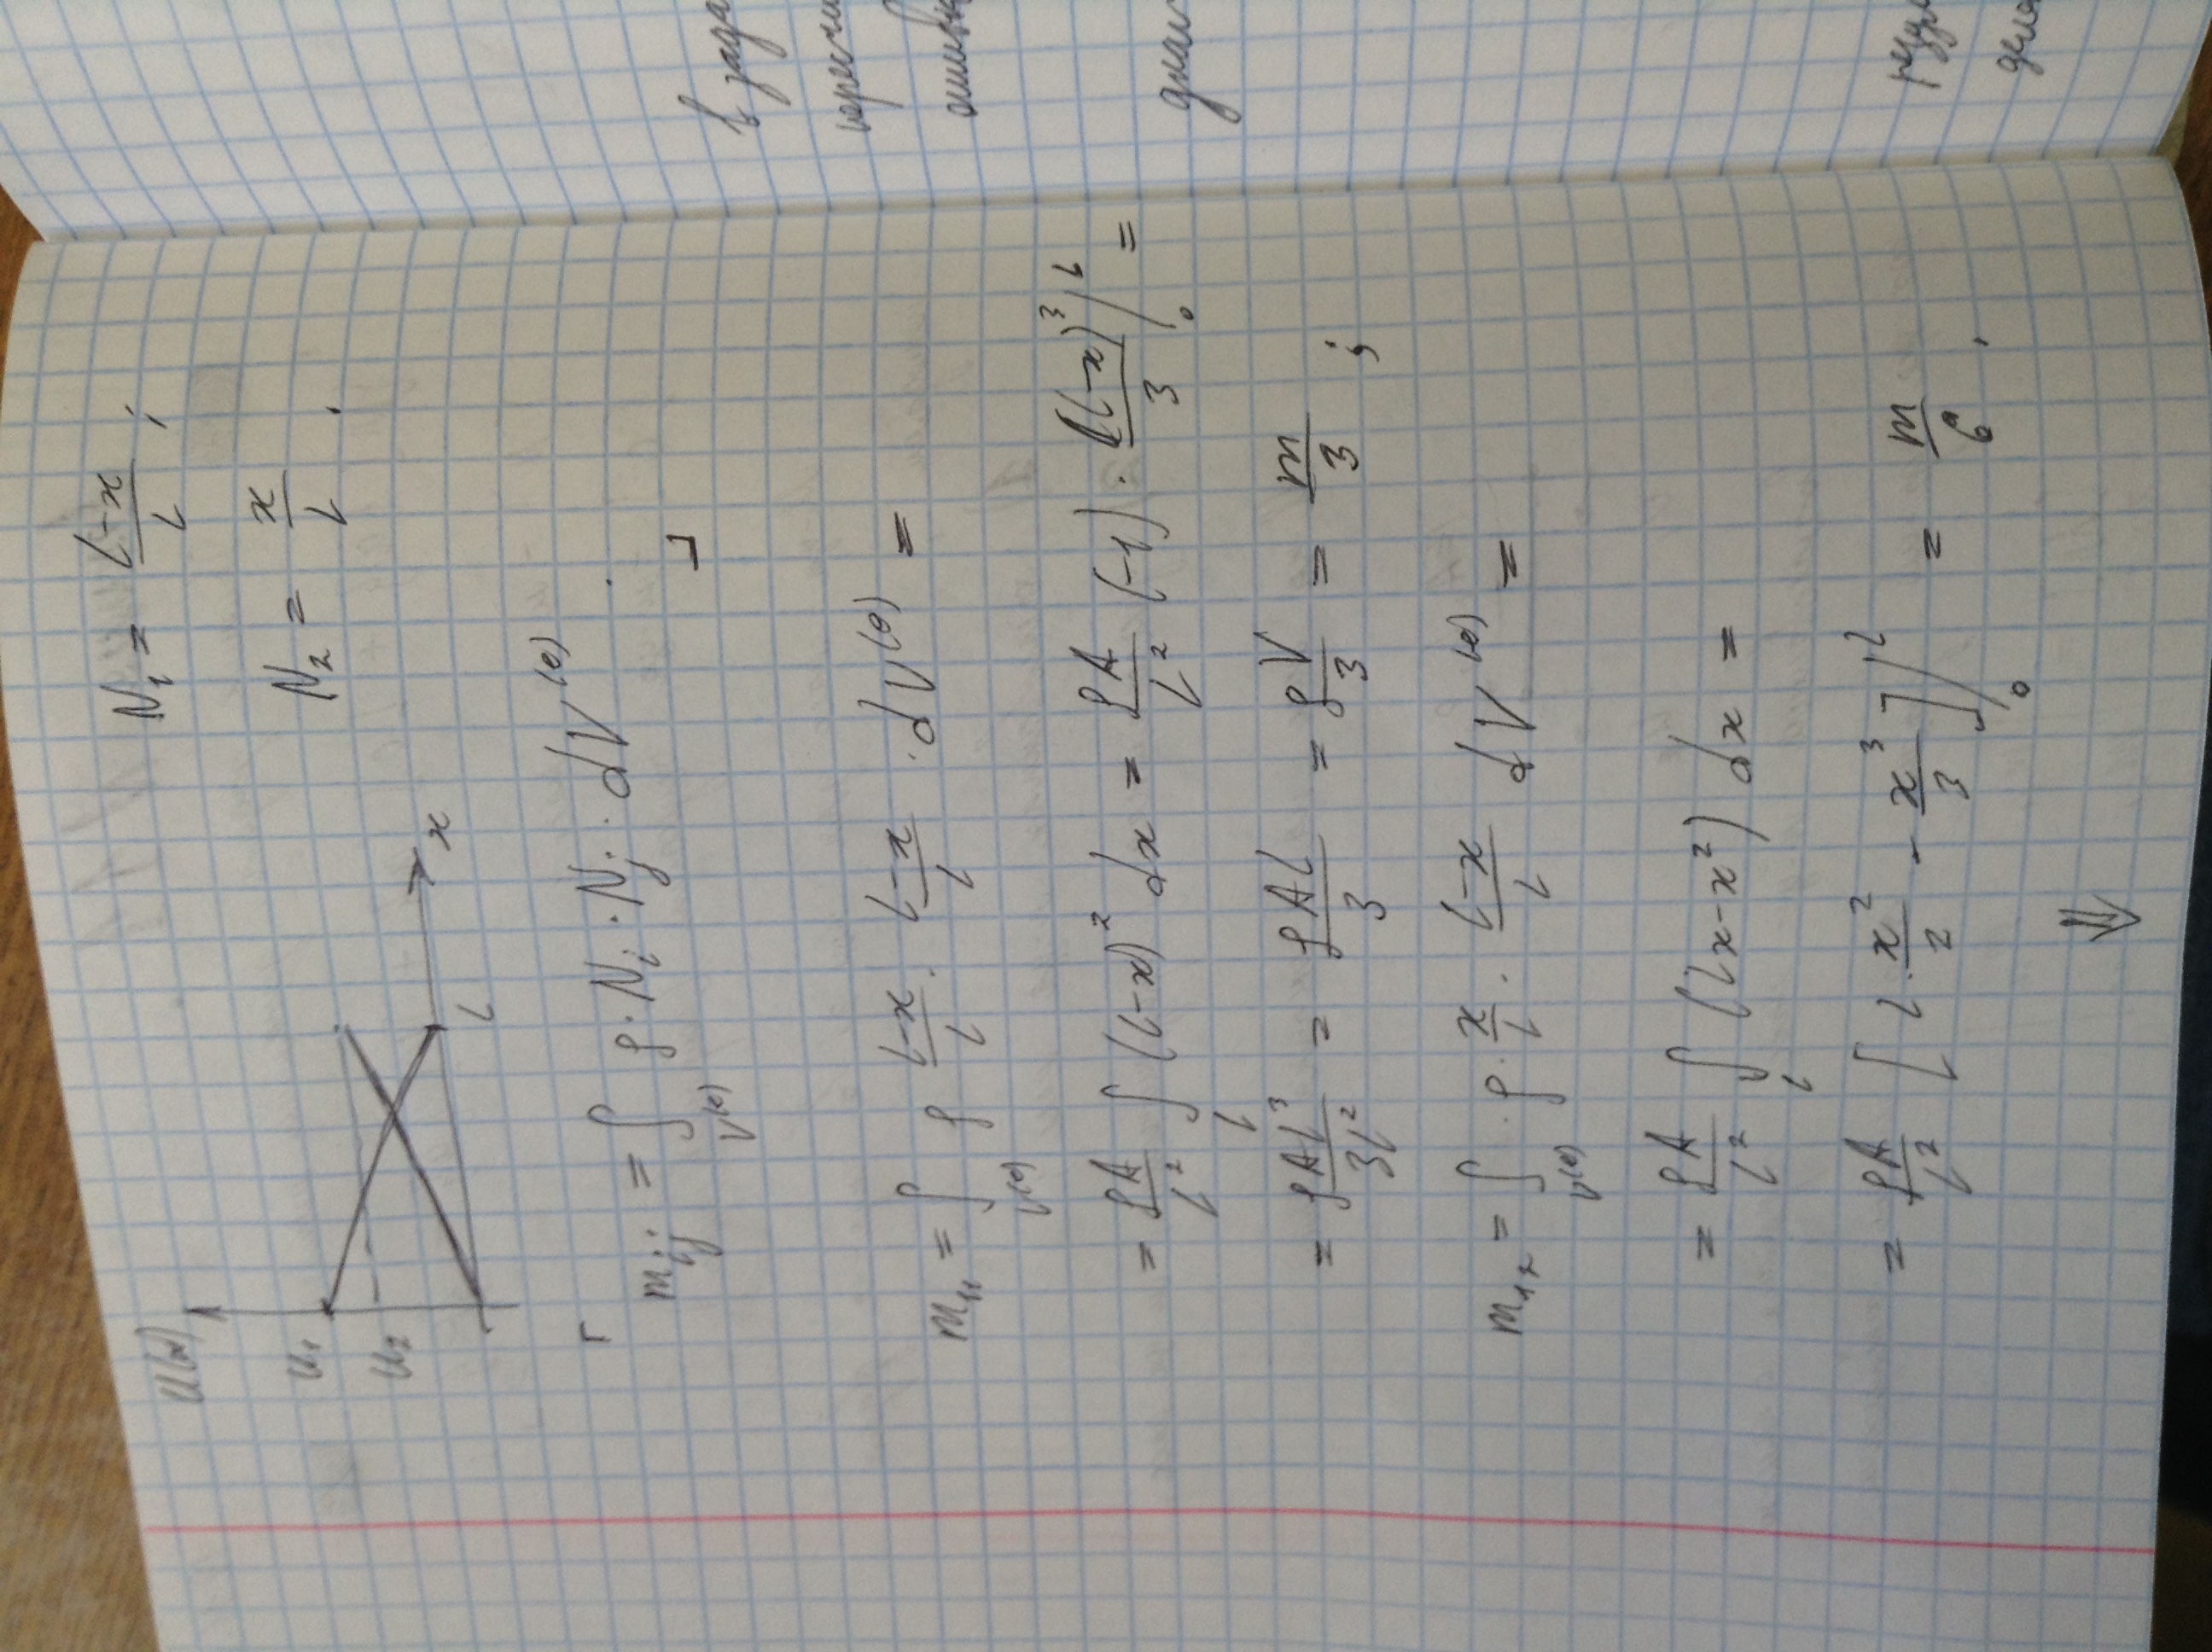 N₁ = (L-x)/L ;
N₂ = x/L .
u(x)
u₁
u₂
x
L
⌜ mᵢⱼ = ∫_V⁽ᵉ⁾ ρ · Nᵢ · Nⱼ · dV⁽ᵉ⁾ . ⌟
m₁₁ = ∫_V⁽ᵉ⁾ ρ (L-x)/L · (L-x)/L · dV⁽ᵉ⁾ =
= ρA/L² ∫_L (L-x)² dx = ρA/L² (-1) · (L-x)³/3 |₀ᴸ =
= ρAL³/3L² = ρAL/3 = ρV/3 = m/3 ;
m₁₂ = ∫_V⁽ᵉ⁾ · ρ · x/L · (L-x)/L dV⁽ᵉ⁾ =
= ρA/L² ∫_L (Lx-x²) dx =
= ρA/L² [L · x²/2 - x³/3] |₀ᴸ = m/6 .
⇓
в